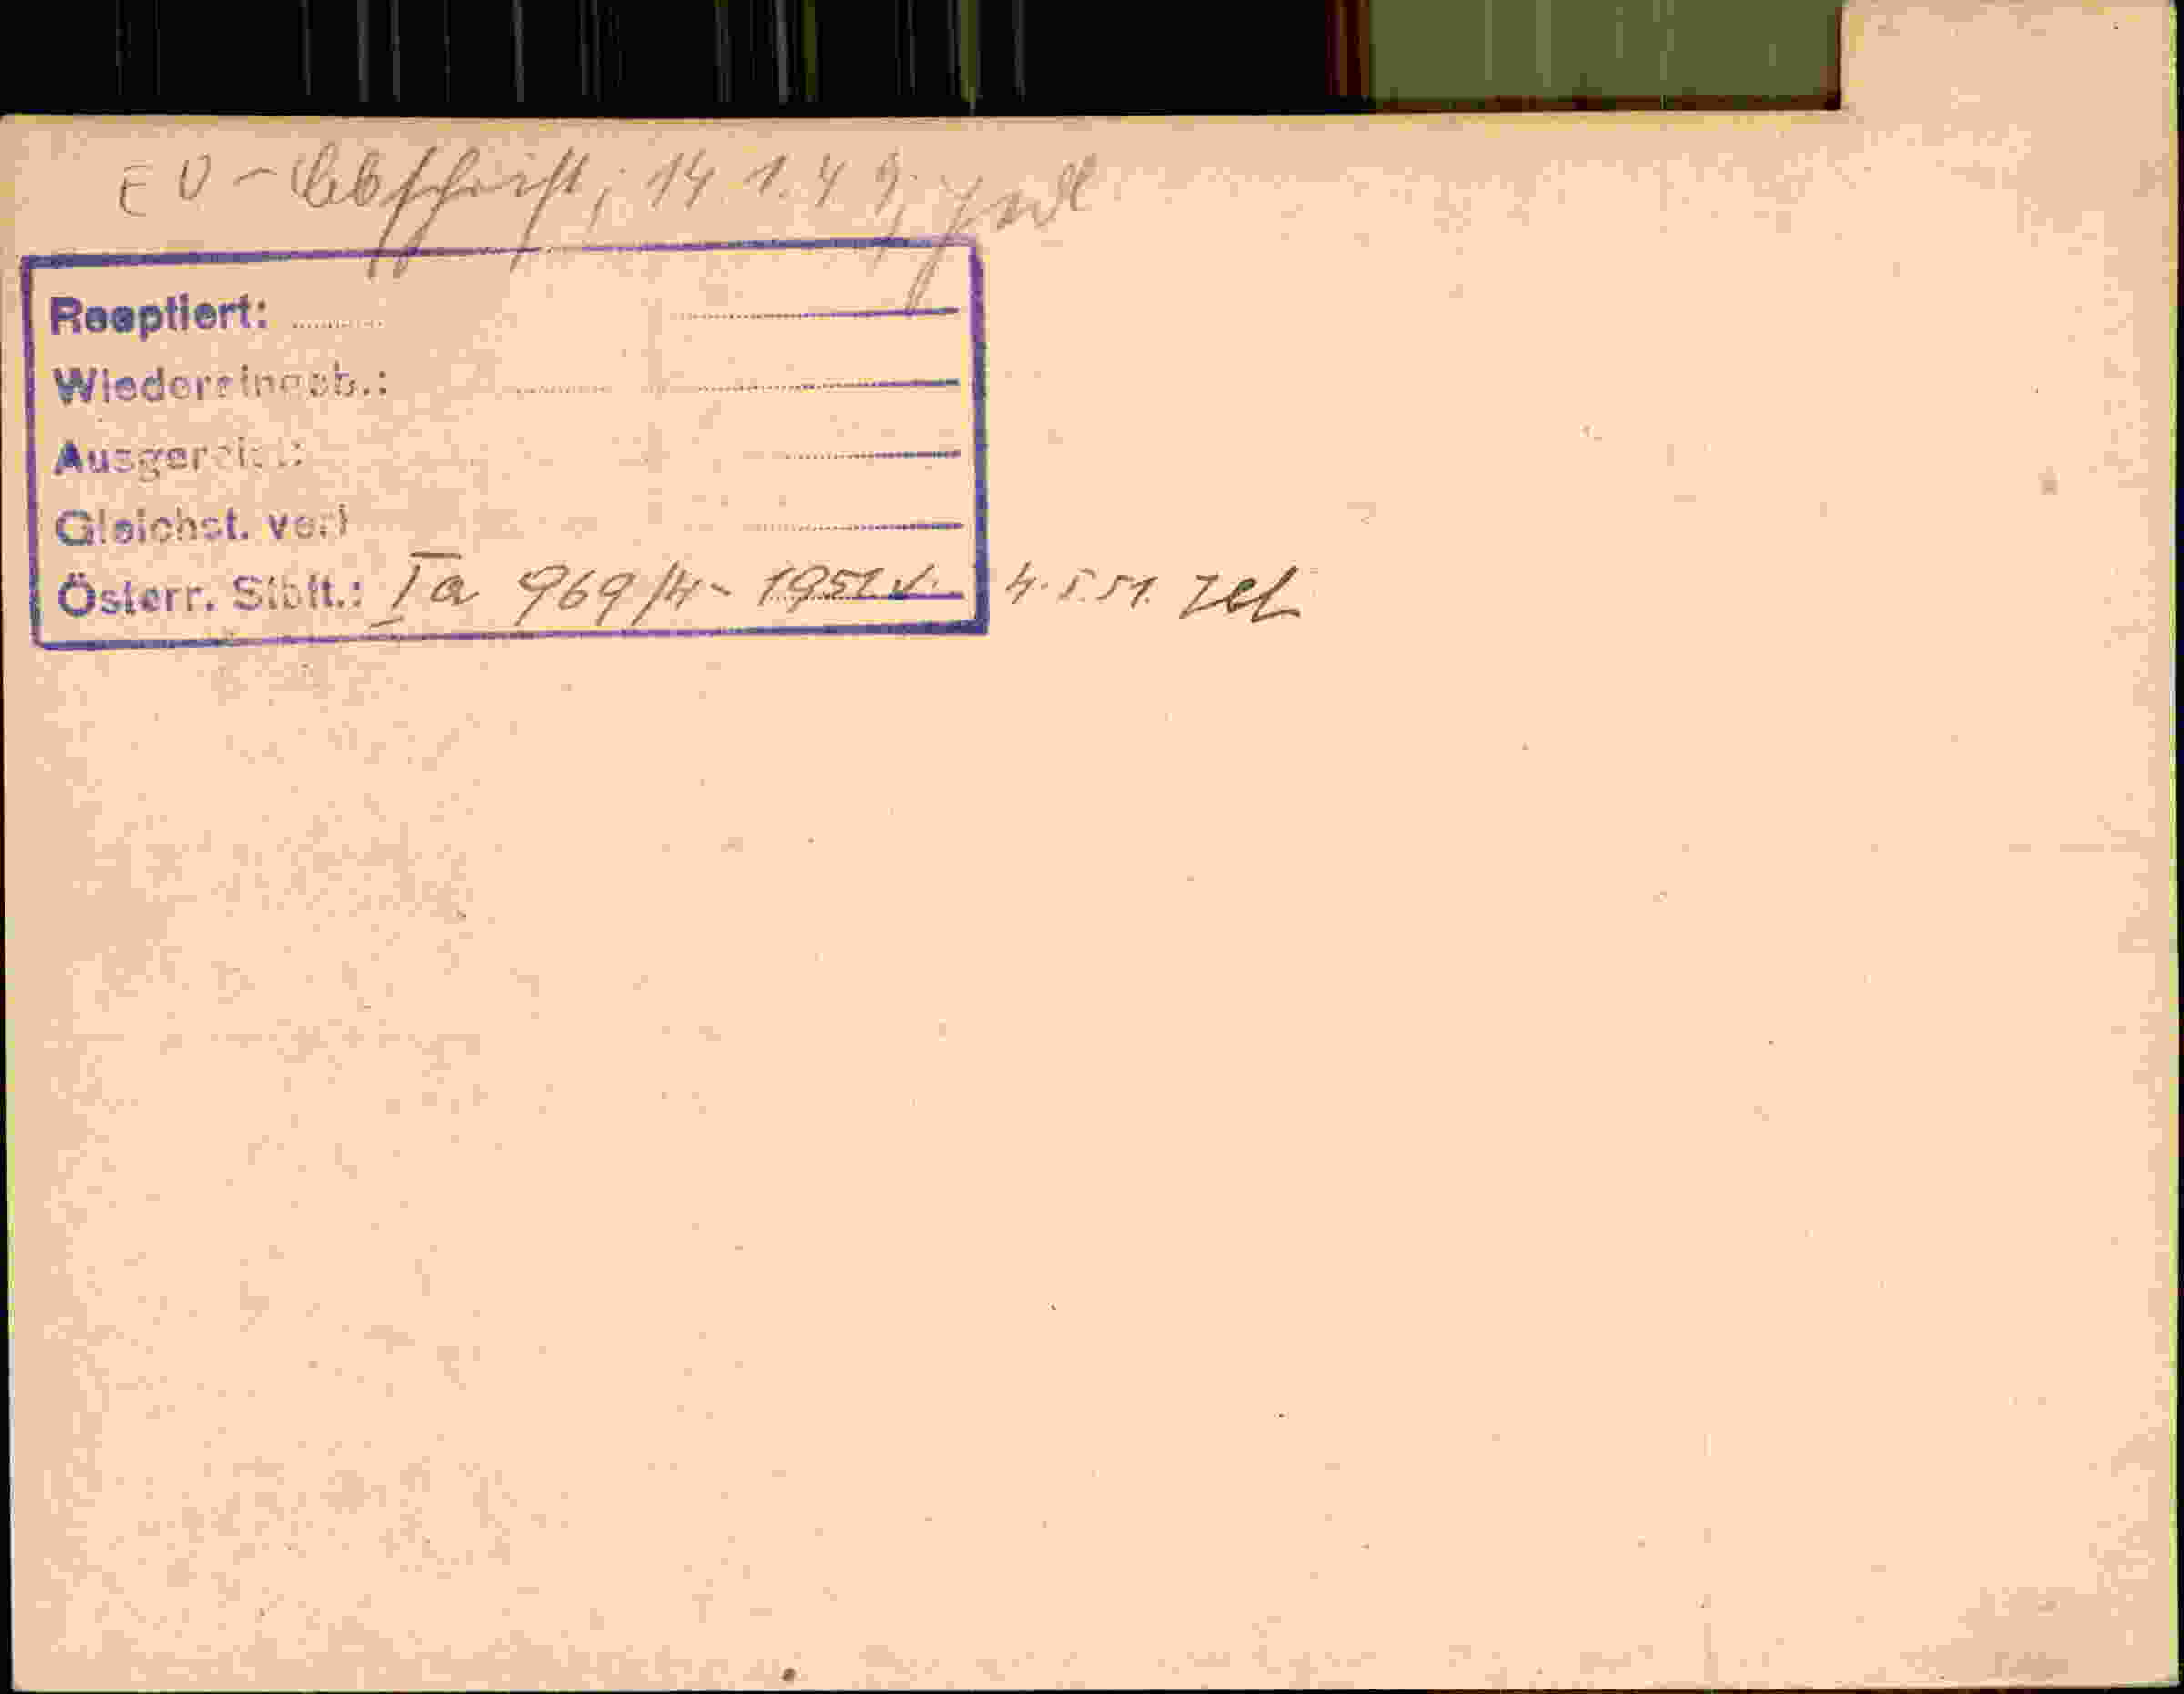 EU - Abschrift; 14.1.49;
Reoptiert:
Wiedereingeb.:
Ausgereist:
Gleichst. verl
Österr. Stbft.: Ia 969/4 - 1951 v. 4.5.51.